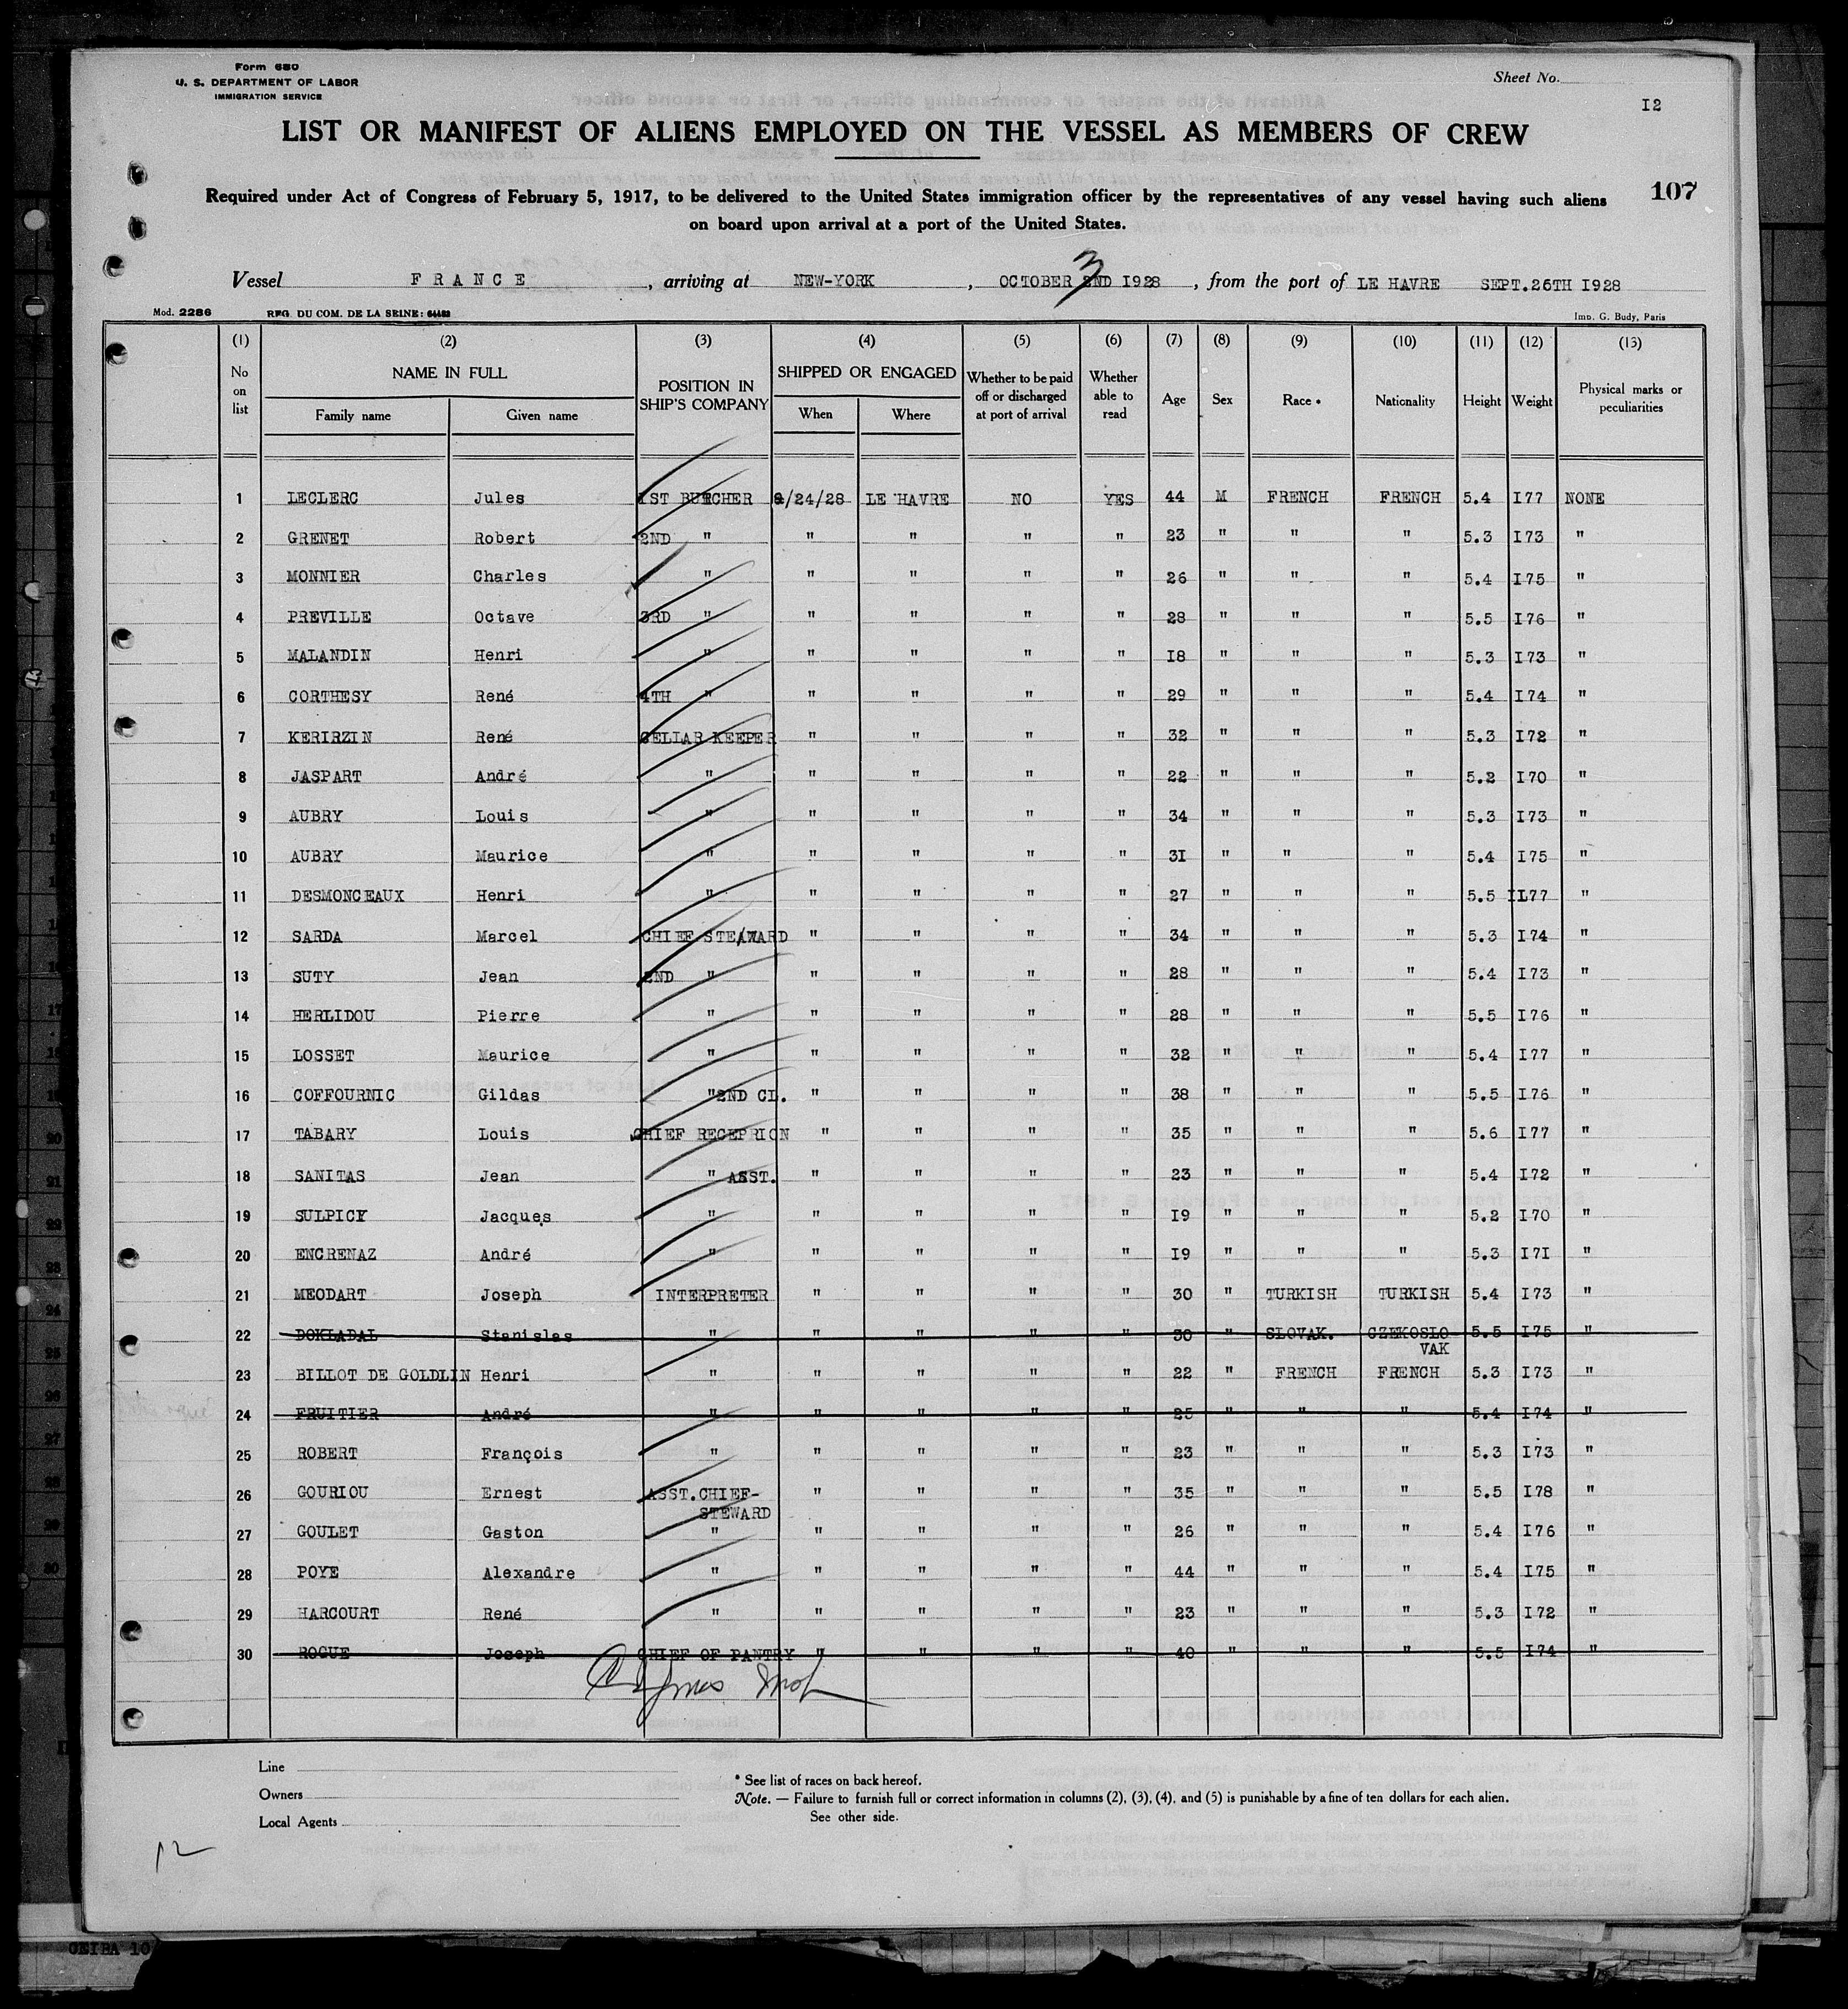 Form 680
U. S. DEPARTMENT OF LABOR
IMMIGRATION SERVICE
Sheet No.
I2
LIST OR MANIFEST OF ALIENS EMPLOYED ON THE VESSEL AS MEMBERS OF CREW
107
Required under Act of Congress of February 5, 1917, to be delivered to the United States immigration officer by the representatives of any vessel having such aliens
on board upon arrival at a port of the United States.
Vessel FRANCE, arriving at NEW-YORK, OCTOBER 2ND I928 3, from the port of LE HAVRE SEPT.26TH I928
Mod. 2286 REG. DU COM. DE LA SEINE: Imp. G. Budy, Paris
(1) (2) (3) (4) (5) (6) (7) (8) (9) (10) (11) (12) (13)
No on list NAME IN FULL POSITION IN SHIP'S COMPANY SHIPPED OR ENGAGED Whether to be paid off or discharged at port of arrival Whether able to read Age Sex Race * Nationality Height Weight Physical marks or peculiarities
Family name Given name When Where
1 LECLERC Jules 1ST BUTCHER 9/24/28 LE HAVRE NO YES 44 M FRENCH FRENCH 5.4 I77 NONE
2 GRENET Robert 2ND " " " " " 23 " " " 5.3 I73 "
3 MONNIER Charles " " " " " 26 " " " 5.4 I75 "
4 PREVILLE Octave 3RD " " " " " 28 " " " 5.5 I76 "
5 MALANDIN Henri " " " " " I8 " " " 5.3 I73 "
6 CORTHESY René 4TH " " " " " 29 " " " 5.4 I74 "
7 KERIRZIN René CELLAR KEEPER " " " " 32 " " " 5.3 I72 "
8 JASPART André " " " " " 22 " " " 5.2 I70 "
9 AUBRY Louis " " " " " 34 " " " 5.3 I73 "
10 AUBRY Maurice " " " " " 3I " " " 5.4 I75 "
11 DESMONCEAUX Henri " " " " " 27 " " " 5.5 I77 "
12 SARDA Marcel CHIEF STEWARD " " " " 34 " " " 5.3 I74 "
13 SUTY Jean 2ND " " " " " 28 " " " 5.4 I73 "
14 HERLIDOU Pierre " " " " " 28 " " " 5.5 I76 "
15 LOSSET Maurice " " " " " 32 " " " 5.4 I77 "
16 COFFOURNIC Gildas " 2ND CL. " " " " 38 " " " 5.5 I76 "
17 TABARY Louis CHIEF RECEPRION " " " " 35 " " " 5.6 I77 "
18 SANITAS Jean " ASST. " " " " 23 " " " 5.4 I72 "
19 SULPICE Jacques " " " " " I9 " " " 5.2 I70 "
20 ENCRENAZ André " " " " " I9 " " " 5.3 I7I "
21 MEODART Joseph INTERPRETER " " " " 30 " TURKISH TURKISH 5.4 I73 "
22 DOKLADAL Stanislas " " " " " 30 " SLOVAK. CZEKOSLO 5.5 I75 "
VAK
23 BILLOT DE GOLDLIN Henri " " " " " 22 " FRENCH FRENCH 5.3 I73 "
24 FRUITIER André " " " " " 25 " " " 5.4 I74 "
25 ROBERT François " " " " " 23 " " " 5.3 I73 "
26 GOURIOU Ernest ASST.CHIEF- " " " " 35 " " " 5.5 I78 "
STEWARD
27 GOULET Gaston " " " " " 26 " " " 5.4 I76 "
28 POYE Alexandre " " " " " 44 " " " 5.4 I75 "
29 HARCOURT René " " " " " 23 " " " 5.3 I72 "
30 ROGUE Joseph CHIEF OF PANTRY " " " " 40 " " " 5.5 I74 "
Line
Owners
Local Agents
* See list of races on back hereof.
Note. — Failure to furnish full or correct information in columns (2), (3), (4), and (5) is punishable by a fine of ten dollars for each alien.
See other side.
12